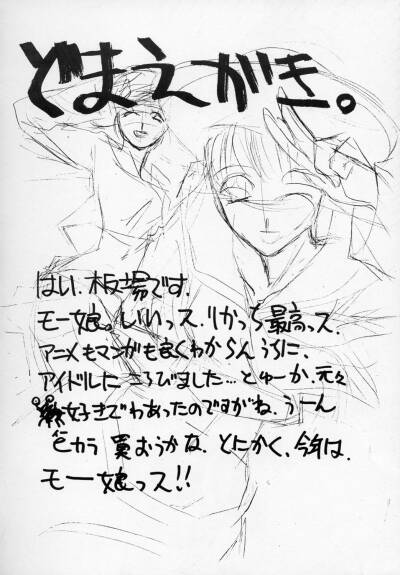 どまえがき。
はい.板場です.
モー娘。いいっス.りかっち最高っス.
アニメもマンガも良くわからんうちに、
アイドルに ころびました…とゅーか、元々
好きでわあったのですがね.うーん
カラ 買おうかな. とにかく、今年は.
モー娘っス!!